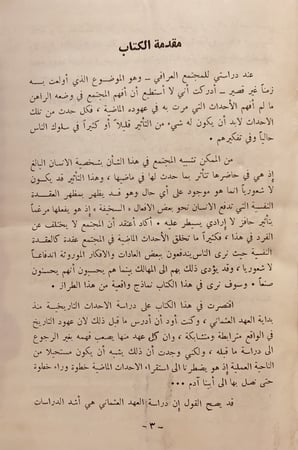 مقدمة الكتاب
عند دراستي للمجتمع العراقي - وهو الموضوع الذي أولعت بـه
زمناً غير قصير - أدركت أني لا أستطيع أن أفهم المجتمع في وضعه الراهن
ما لم أفهم الأحداث التي مرت به في عهوده الماضية ، فكل حدث من تلك
الأحداث لابد أن يكون له شيء من التأثير قليلاً أو كثيراً في سلوك الناس
حالياً وفي تفكيرهم .
من الممكن تشبيه المجتمع في هذا الشأن بشخصية الانسان البالغ
إذ هي في حاضرها تتأثر بما حدث لها في ماضيها ، وهذا التأثير قد يكـون
لا شعوريا انما هو موجود على أي حال وهو قـد يظهر بمظهر العقـدة
النفسية التي تدفع الانسان نحو بعض الافعال السخيفة ، إذ هو يفعلها مرغماً
بتأثير حافز لا إرادي يسيطر عليه . أكاد أعتقد أن المجتمع لا يختلف عن
الفرد في هذا ، فكثيراً ما تخلق الأحداث الماضية في المجتمع عقدة كالعقـدة
النفسية حيث نرى الناس يندفعون ببعض العادات والافكار الموروثة اندفاعـاً
لا شعوريا ، وقد يؤدي ذلك بهم الى المهالك بينما هم يحسبون أنهم يحسنون
صنعاً . وسوف نرى في هذا الكتاب نماذج واقعية من هذا الطراز .
اقتصرت في هذا الكتاب على دراسة الاحداث التاريخيـة منـذ
بداية العهد العثماني ، وكنت أود أن أدرس ما قبل ذلك لان عهود التاريخ
في الواقع مترابطة ومتشابكة ، وان كل عهد منها يصعب فهمه بغير الرجوع
الى دراسة ما قبله ، ولكني وجدت أن ذلك يشبه أن يكون مستحيلا من
الناحية العملية إذ هو يضطرنا الى استقراء الاحداث الماضية خطوة وراء خطوة
حتى نصل بها الى أبينا آدم ...
قد يصح القول إن دراسة العهد العثماني هي أشد الدراسات
- ٣ -